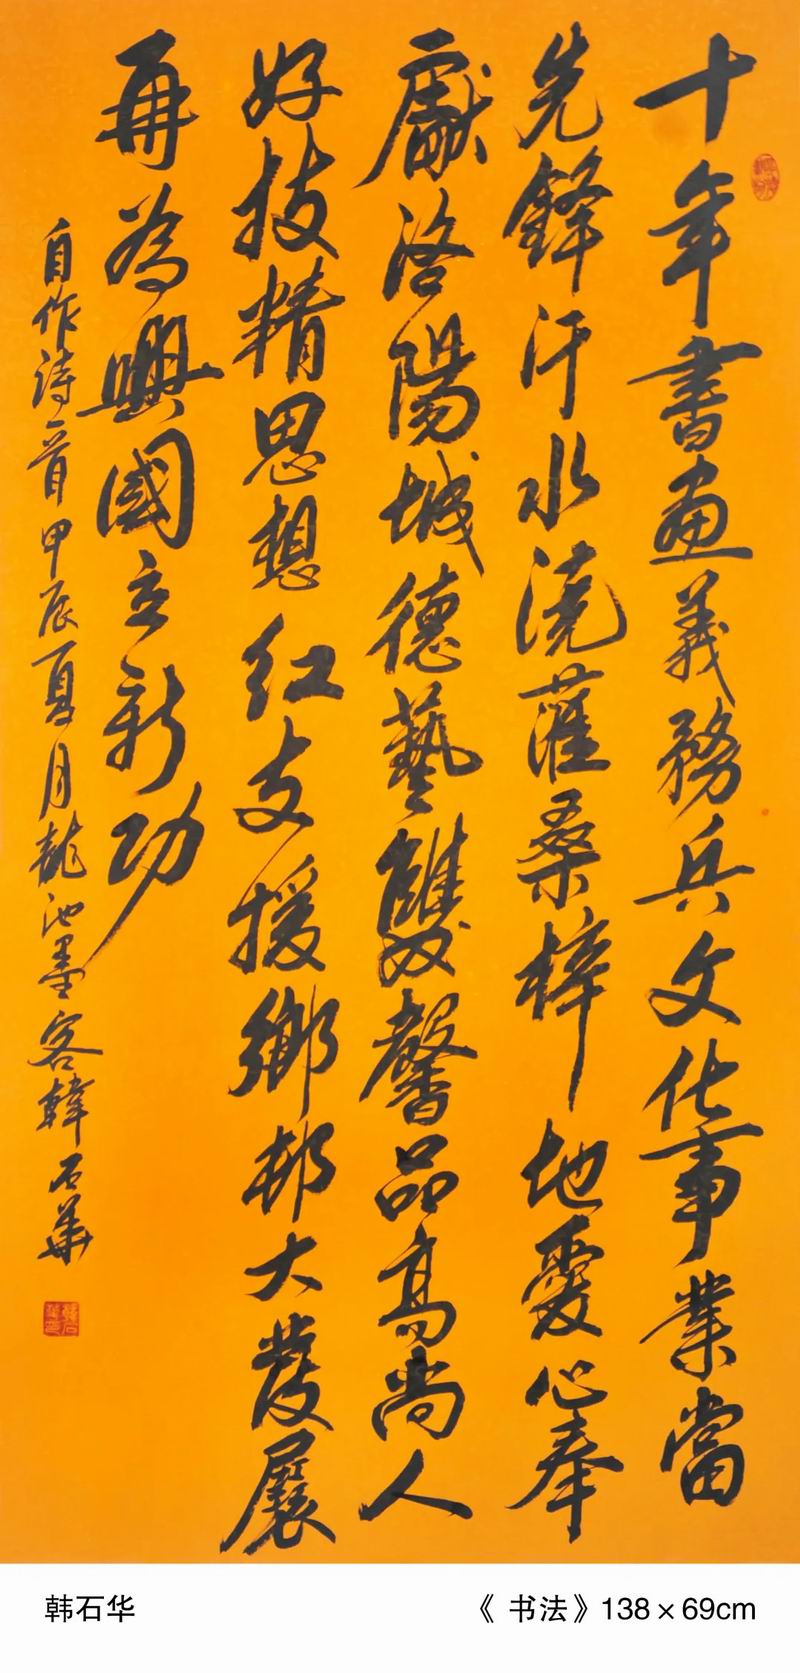 十年書畫義務兵文化事業當
先鋒汗水澆灌桑梓地愛心奉
獻洛陽城德藝雙馨品高尚人
好技精思想紅支援鄉邨大發展
再為興國立新功
自作詩一首甲辰夏月龍池墨客韓石華
韩石华
《书法》138×69cm